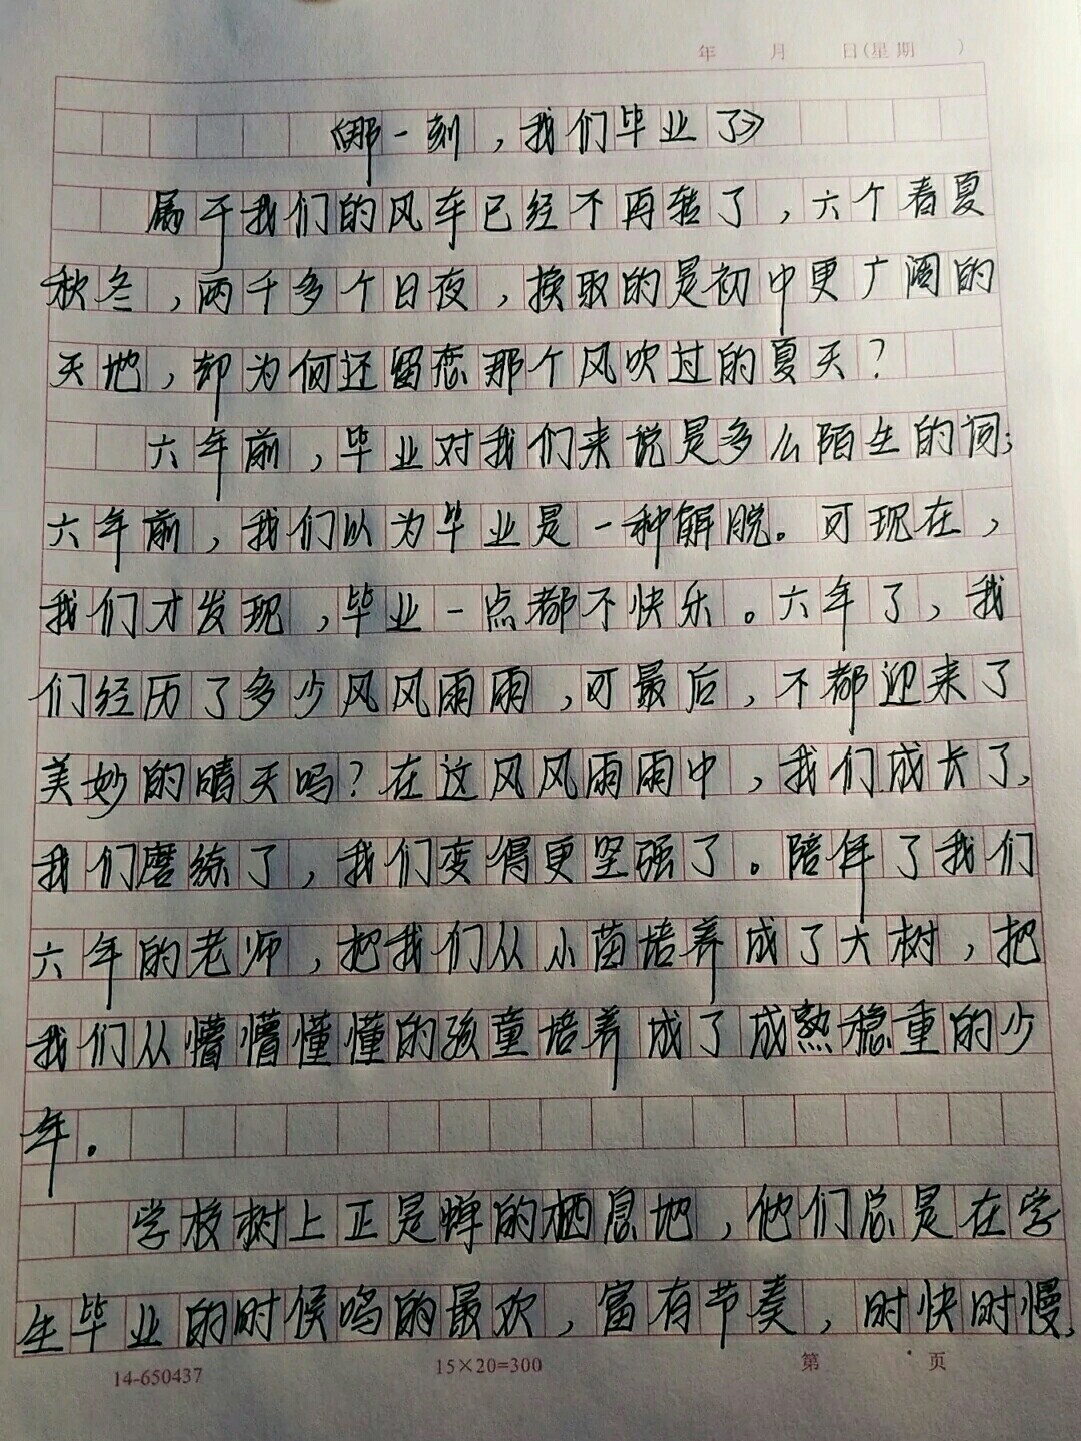 年 月 日(星期 )
《那一刻，我们毕业了》
属于我们的风车已经不再转了，六个春夏
秋冬，两千多个日夜，换取的是初中更广阔的
天地，却为何还留恋那个风吹过的夏天？
六年前，毕业对我们来说是多么陌生的词；
六年前，我们以为毕业是一种解脱。可现在，
我们才发现，毕业一点都不快乐。六年了，我
们经历了多少风风雨雨，可最后，不都迎来了
美妙的晴天吗？在这风风雨雨中，我们成长了，
我们磨练了，我们变得更坚强了。陪伴了我们
六年的老师，把我们从小苗培养成了大树，把
我们从懵懵懂懂的孩童培养成了成熟稳重的少
年。
学校树上正是蝉的栖息地，他们总是在学
生毕业的时候鸣的最欢，富有节奏，时快时慢，
14-650437 15×20=300 第 页